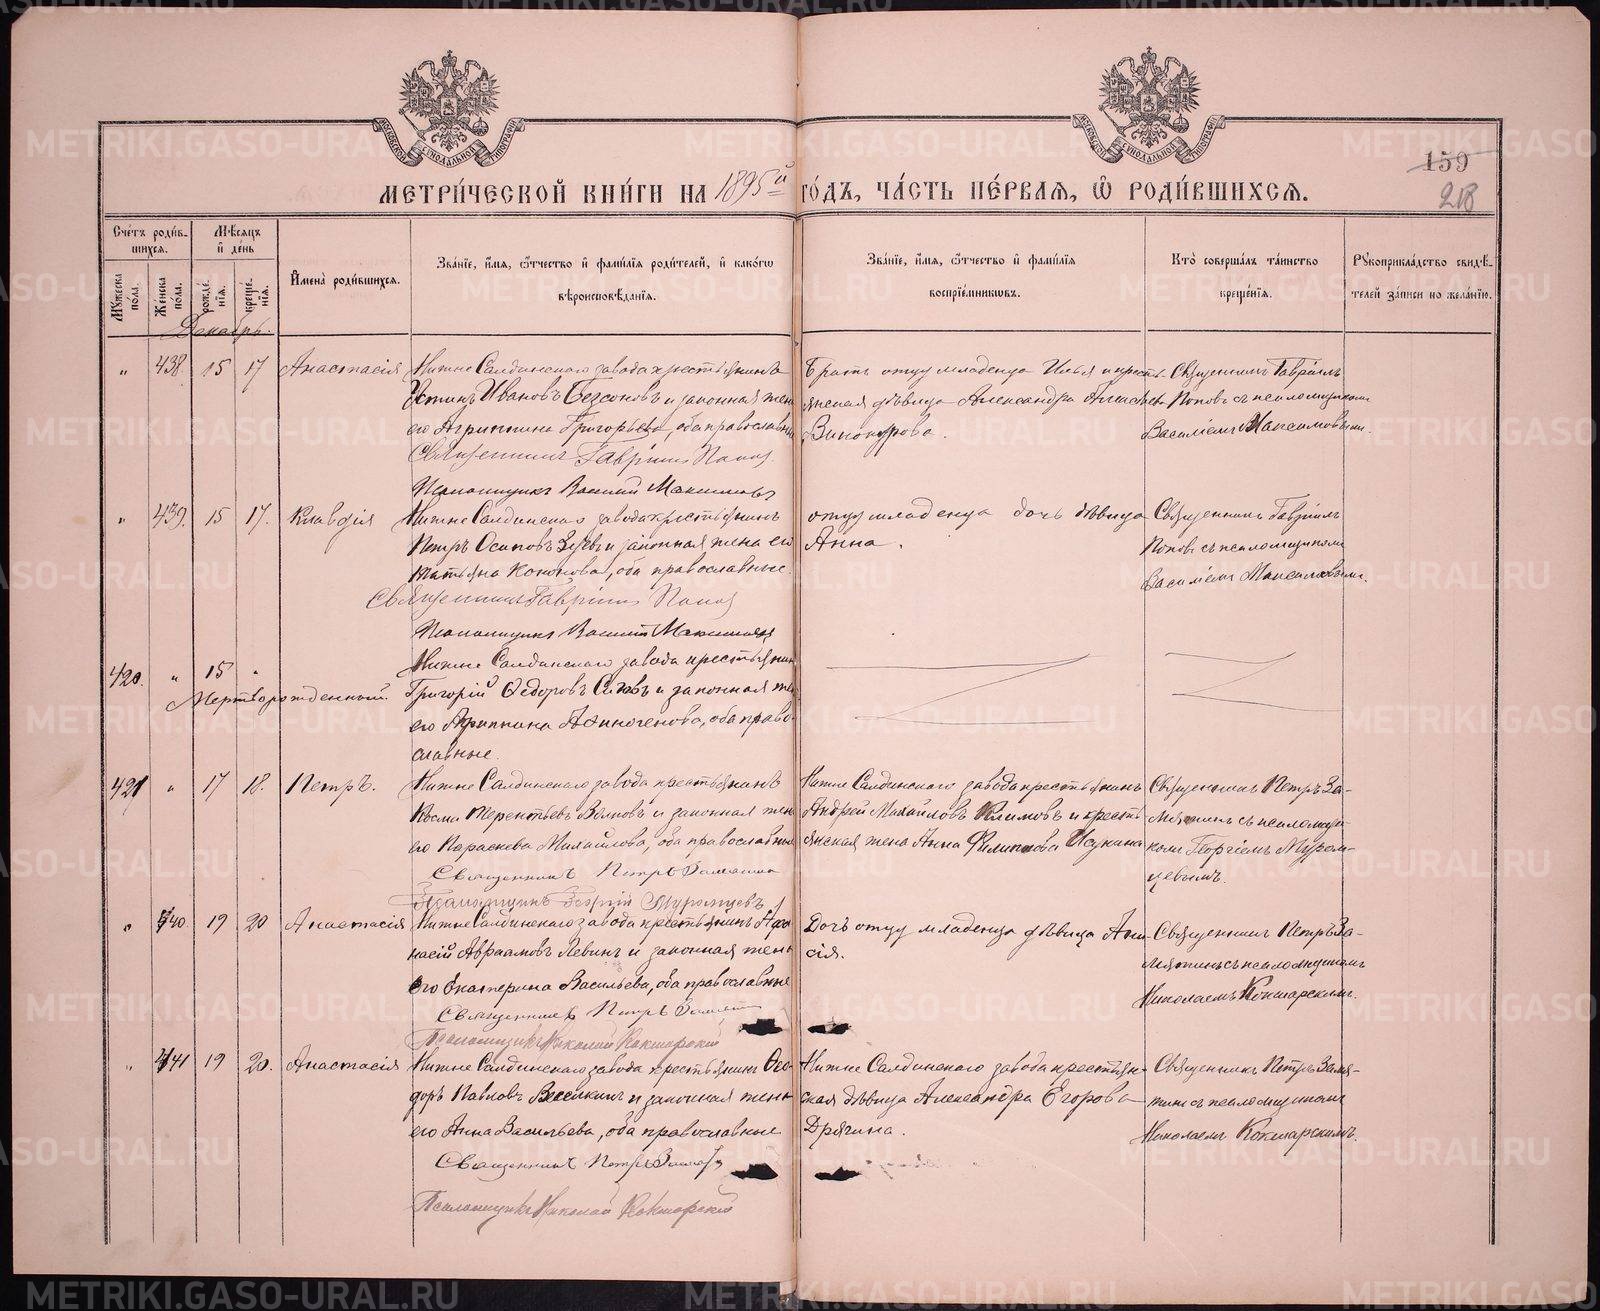 159
218
МЕТРИ́ЧЕСКОЙ КНИ́ГИ НА 1895й ГО́ДЪ, ЧА́СТЬ ПЕ́РВАЯ, Ѿ РОДИ́ВШИХСЯ.
Сче́тъ роди́вшихся.
Мужеска по́ла.
Женска по́ла.
Мѣ́сяцъ и де́нь
рожде́нїя.
креще́нїя.
Имена̀ роди́вшихся.
Зва́нїе, и́мя, ѻ́тчество и фами́лїя роди́телей, и како́гѡ
вѣроисповѣ́данїя.
Зва́нїе, и́мя, ѻ́тчество и фами́лїя
воспрїе́мникѡвъ.
Кто̀ соверша́лъ та́инство
креще́нїя.
Рукоприкла́дство свидѣ́-
телей за́писи по жела́нїю.
Декабрь.
" 438. 15 17 Анастасія
Нижне Салдинскаго завода крестьянинъ
Устинъ Ивановъ Безсоновъ и законная жена
его Агриппина Григорьева, оба православны
Священникъ Гавріилъ Поповъ
Псаломщикъ Василий Максимовъ
Братъ отцу младенца Илья и кресть-
янская дѣвица Александра
Винокурова.
Священникъ Гавріилъ
Поповъ съ псаломщикомъ
Василіемъ Максимовымъ.
" 439. 15 17. Клавдія
Нижне Салдинскаго завода крестьянинъ
Петръ Осиповъ Зуевъ и законная жена его
Татьяна Кононова, оба православные.
Священникъ Гавріилъ Поповъ
Псаломщикъ Василий Максимовъ
отцу младенца дочь дѣвица
Анна.
Священникъ Гавріилъ
Поповъ съ псаломщикомъ
Василіемъ Максимовымъ.
420. " 15 "
Мертворожденный
Нижне Салдинскаго завода крестьянинъ
Григорій Ѳедоровъ и законная жена
его Агриппина Афиногенова, оба право-
славные.
421 " 17 18. Петръ.
Нижне Салдинскаго завода крестьянинъ
Косма Терентьевъ Волковъ и законная жена
его Параскева Михайлова, оба православные
Священникъ Петръ Замятинъ
Псаломщикъ Георгій Муромцевъ
Нижне Салдинскаго завода крестьянинъ
Андрей Михайловъ Климовъ и кресть
янская жена Анна Филиппова Исупана
Священникъ Петръ За-
мятинъ съ псаломщи-
комъ Георгіемъ Муром-
цевымъ.
" 440. 19 20 Анастасія
Нижне Салдинскаго завода крестьянинъ Афа-
насій Авраамовъ Левинъ и законная жена
его Екатерина Васильева, оба православные
Священникъ Петръ Замятинъ
Псаломщикъ Николай Кокшарскій
Дочь отцу младенца дѣвица Ани-
сія.
Священникъ Петръ За-
мятинъ съ псаломщикомъ
Николаемъ Кокшарскимъ.
" 441 19 20. Анастасія
Нижне Салдинскаго завода крестьянинъ Ѳео-
доръ Павловъ Веселкинъ и законная жена
его Анна Васильева, оба православные
Священникъ Петръ Замятинъ
Псаломщикъ Николай Кокшарскій
Нижне Салдинскаго завода крестьян-
ская дѣвица Александра Егорова
Дрягина.
Священникъ Петръ Замя-
тинъ съ псаломщикомъ
Николаемъ Кокшарскимъ.